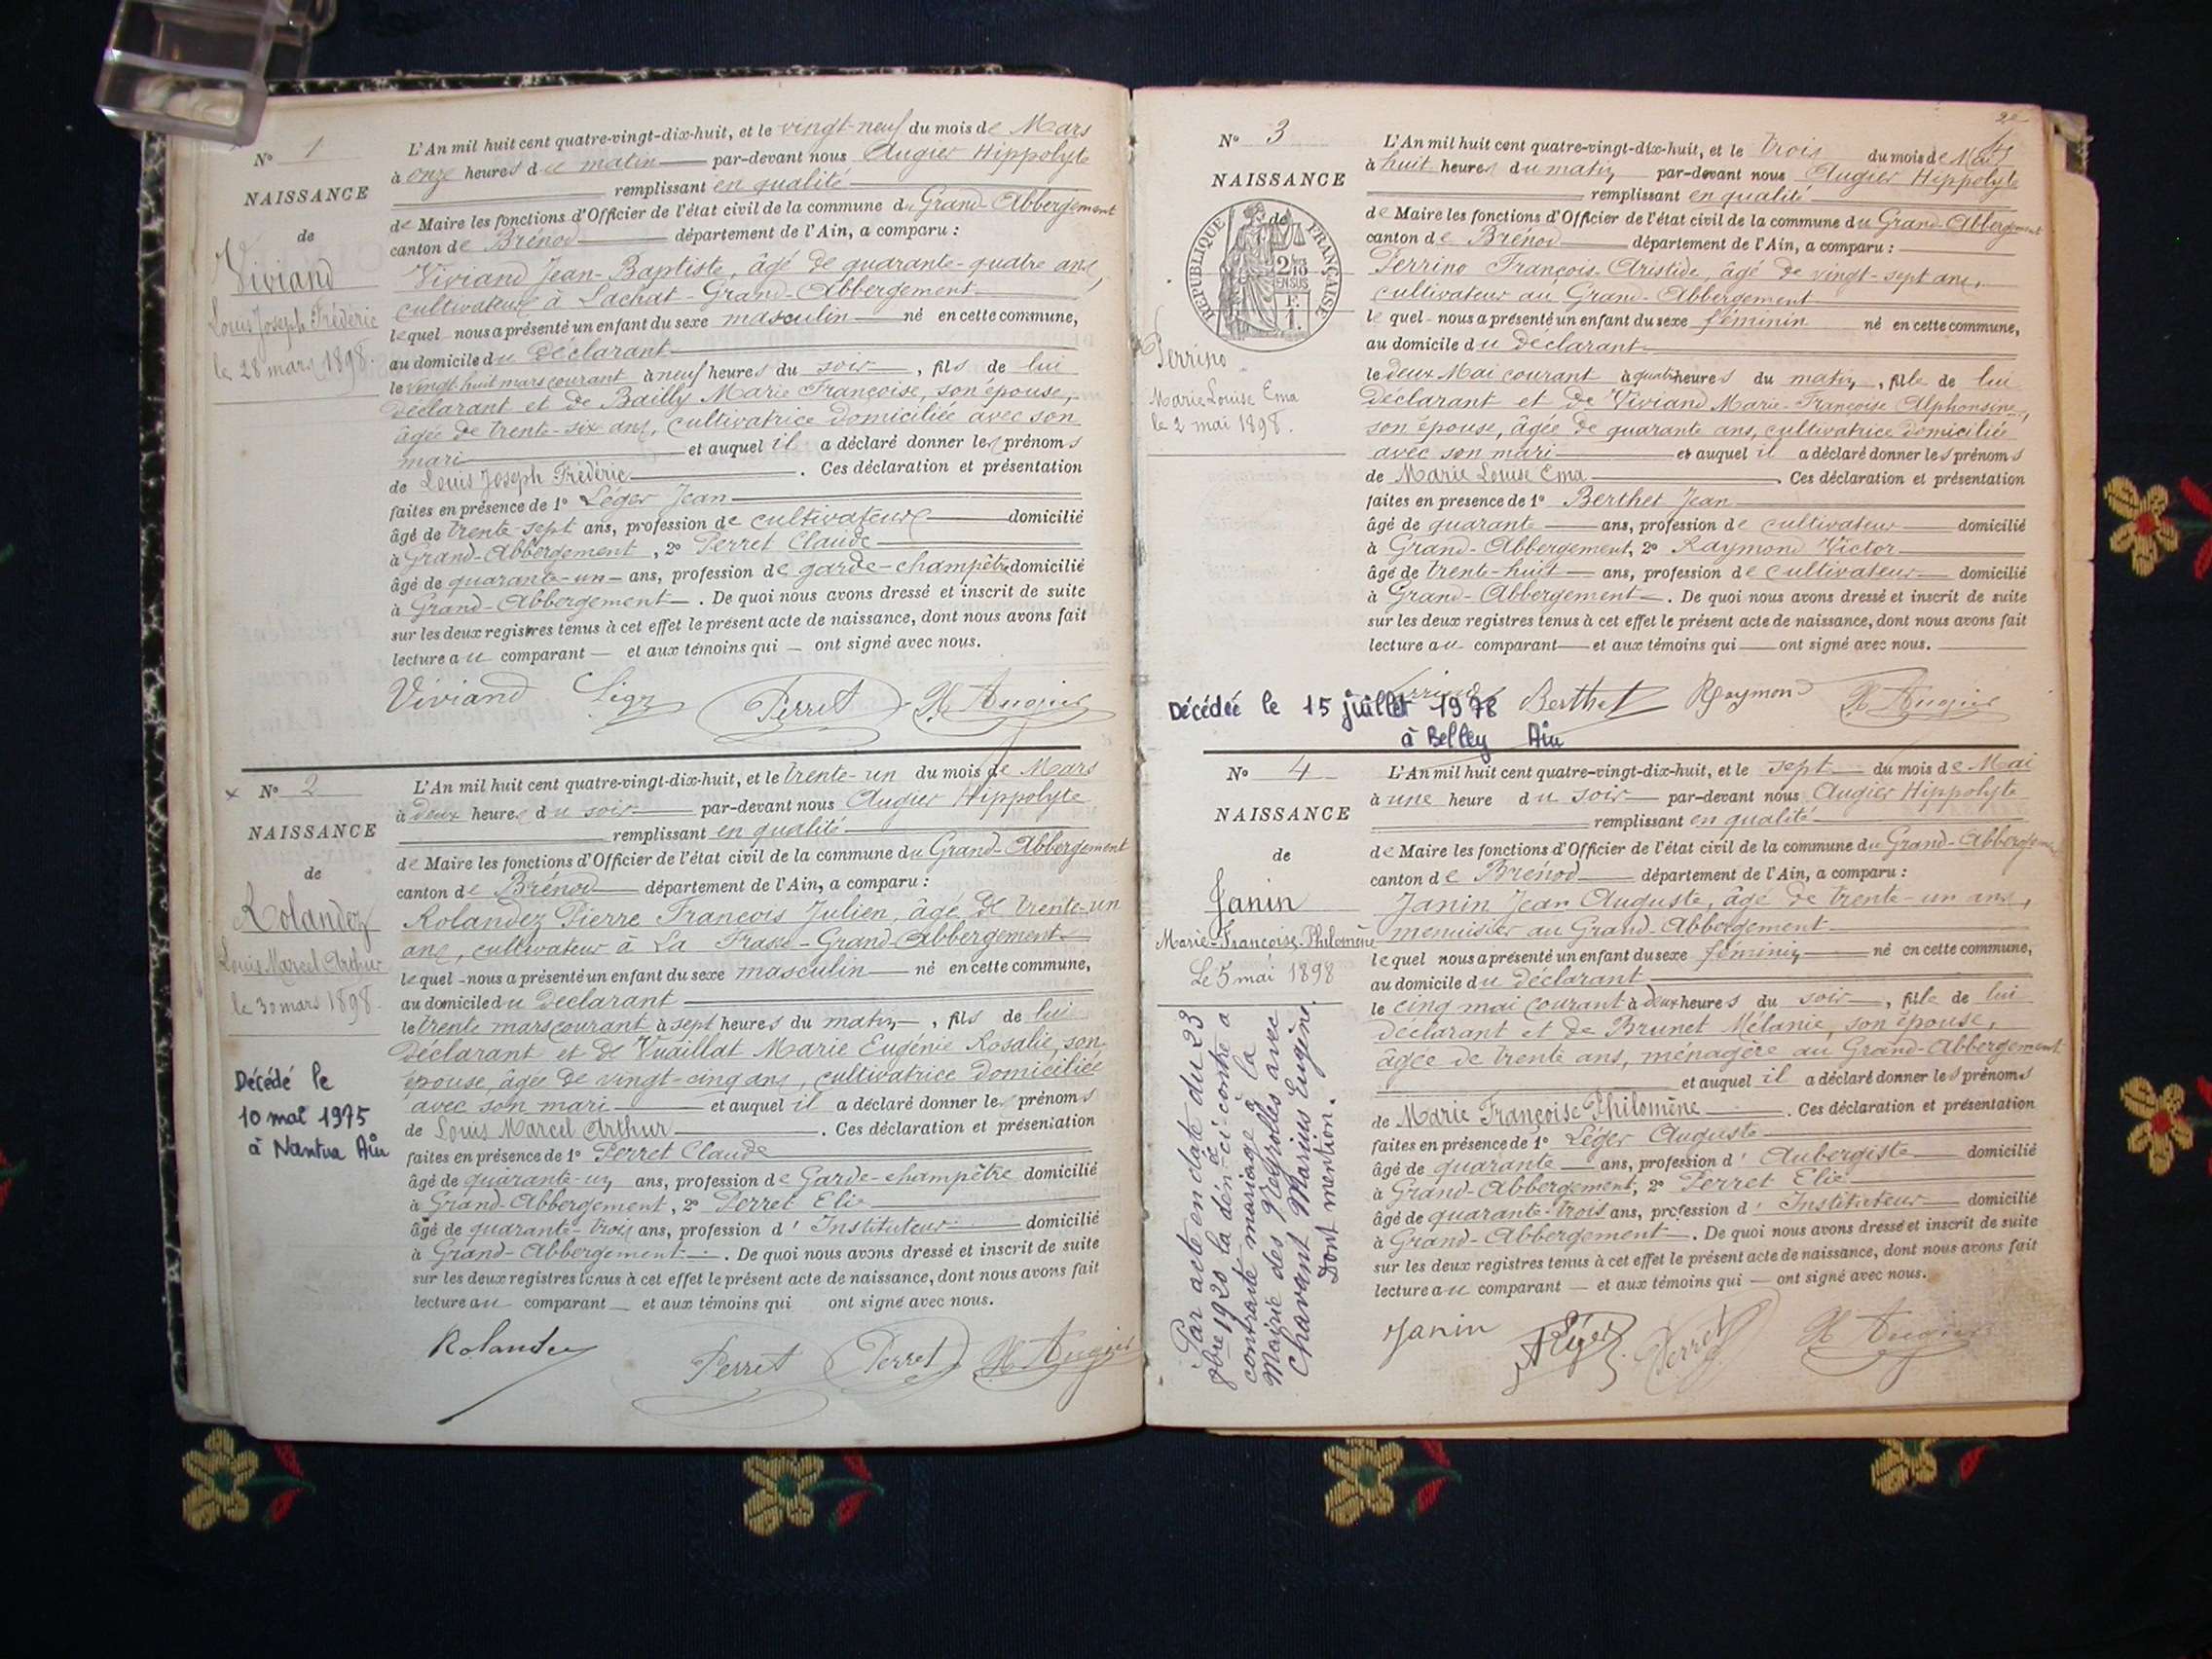 N° 1
NAISSANCE
de
Viviand
Louis Joseph Frédéric
le 28 mars 1898.
L'An mil huit cent quatre-vingt-dix-huit, et le vingt-neuf du mois de Mars
à onze heures du matin par-devant nous Augier Hippolyte
remplissant en qualité
de Maire les fonctions d'Officier de l'état civil de la commune du Grand-Abbergement
canton de Brénod département de l'Ain, a comparu :
Viviand Jean-Baptiste, âgé de quarante-quatre ans,
cultivateur à Lachat-Grand-Abbergement
lequel nous a présenté un enfant du sexe masculin né en cette commune,
au domicile du déclarant
le vingt huit mars courant à neuf heures du soir, fils de lui
déclarant et de Bailly Marie Françoise, son épouse,
âgée de trente-six ans, cultivatrice domiciliée avec son
mari et auquel il a déclaré donner les prénoms
de Louis Joseph Frédéric. Ces déclaration et présentation
faites en présence de 1° Léger Jean
âgé de trente-sept ans, profession de cultivateur domicilié
à Grand-Abbergement, 2° Perret Claude
âgé de quarante-un ans, profession de garde-champêtre domicilié
à Grand-Abbergement. De quoi nous avons dressé et inscrit de suite
sur les deux registres tenus à cet effet le présent acte de naissance, dont nous avons fait
lecture au comparant et aux témoins qui ont signé avec nous.
Viviand Léger Perret H. Augier
N° 2
NAISSANCE
de
Rolandez
Louis Marcel Arthur
le 30 mars 1898.
Décédé le
10 mai 1975
à Nantua Ain
L'An mil huit cent quatre-vingt-dix-huit, et le trente-un du mois de Mars
à deux heures du soir par-devant nous Augier Hippolyte
remplissant en qualité
de Maire les fonctions d'Officier de l'état civil de la commune du Grand-Abbergement
canton de Brénod département de l'Ain, a comparu :
Rolandez Pierre François Julien, âgé de trente-un
ans, cultivateur à La Frasse-Grand-Abbergement
lequel nous a présenté un enfant du sexe masculin né en cette commune,
au domicile du déclarant
le trente mars courant à sept heures du matin, fils de lui
déclarant et de Vuaillat Marie Eugénie Rosalie, son
épouse, âgée de vingt-cinq ans, cultivatrice domiciliée
avec son mari et auquel il a déclaré donner les prénoms
de Louis Marcel Arthur. Ces déclaration et présentation
faites en présence de 1° Perret Claude
âgé de quarante-un ans, profession de Garde-champêtre domicilié
à Grand-Abbergement, 2° Perret Elie
âgé de quarante-trois ans, profession d'Instituteur domicilié
à Grand-Abbergement. De quoi nous avons dressé et inscrit de suite
sur les deux registres tenus à cet effet le présent acte de naissance, dont nous avons fait
lecture au comparant et aux témoins qui ont signé avec nous.
Rolandez Perret Perret H. Augier
N° 3
NAISSANCE
de
RÉPUBLIQUE FRANÇAISE
2/10 EN SUS
1 F.
Perrino
Marie Louise Ema
le 2 mai 1898.
L'An mil huit cent quatre-vingt-dix-huit, et le trois du mois de Mai
à huit heures du matin par-devant nous Augier Hippolyte
remplissant en qualité
de Maire les fonctions d'Officier de l'état civil de la commune du Grand-Abbergement
canton de Brénod département de l'Ain, a comparu :
Perrino François-Aristide, âgé de vingt-sept ans,
cultivateur au Grand-Abbergement
lequel nous a présenté un enfant du sexe féminin né en cette commune,
au domicile du déclarant
le deux Mai courant à quatre heures du matin, fille de lui
déclarant et de Viviand Marie-Françoise Alphonsine,
son épouse, âgée de quarante ans, cultivatrice domiciliée
avec son mari et auquel il a déclaré donner les prénoms
de Marie Louise Ema. Ces déclaration et présentation
faites en présence de 1° Berthet Jean
âgé de quarante ans, profession de cultivateur domicilié
à Grand-Abbergement, 2° Raymond Victor
âgé de trente-huit ans, profession de cultivateur domicilié
à Grand-Abbergement. De quoi nous avons dressé et inscrit de suite
sur les deux registres tenus à cet effet le présent acte de naissance, dont nous avons fait
lecture au comparant et aux témoins qui ont signé avec nous.
Perrino Berthet Raymond H. Augier
Décédée le 15 juillet 1978
à Belley Ain
N° 4
NAISSANCE
de
Janin
Marie-Françoise-Philomène
Le 5 mai 1898
Par acte en date du 23
9bre 1920 la dén-ci-contre a
contracté mariage à la
Mairie des Neyrolles avec
Chavant Marius Eugène.
Dont mention.
L'An mil huit cent quatre-vingt-dix-huit, et le sept du mois de Mai
à une heure du soir par-devant nous Augier Hippolyte
remplissant en qualité
de Maire les fonctions d'Officier de l'état civil de la commune du Grand-Abbergement
canton de Brénod département de l'Ain, a comparu :
Janin Jean Auguste, âgé de trente-un ans,
menuisier au Grand-Abbergement
lequel nous a présenté un enfant du sexe féminin né en cette commune,
au domicile du déclarant
le cinq mai courant à deux heures du soir, fille de lui
déclarant et de Brunet Mélanie, son épouse,
âgée de trente ans, ménagère au Grand-Abbergement
et auquel il a déclaré donner les prénoms
de Marie Françoise Philomène. Ces déclaration et présentation
faites en présence de 1° Léger Auguste
âgé de quarante ans, profession d'Aubergiste domicilié
à Grand-Abbergement, 2° Perret Elie
âgé de quarante-trois ans, profession d'Instituteur domicilié
à Grand-Abbergement. De quoi nous avons dressé et inscrit de suite
sur les deux registres tenus à cet effet le présent acte de naissance, dont nous avons fait
lecture au comparant et aux témoins qui ont signé avec nous.
Janin Léger Perret H. Augier